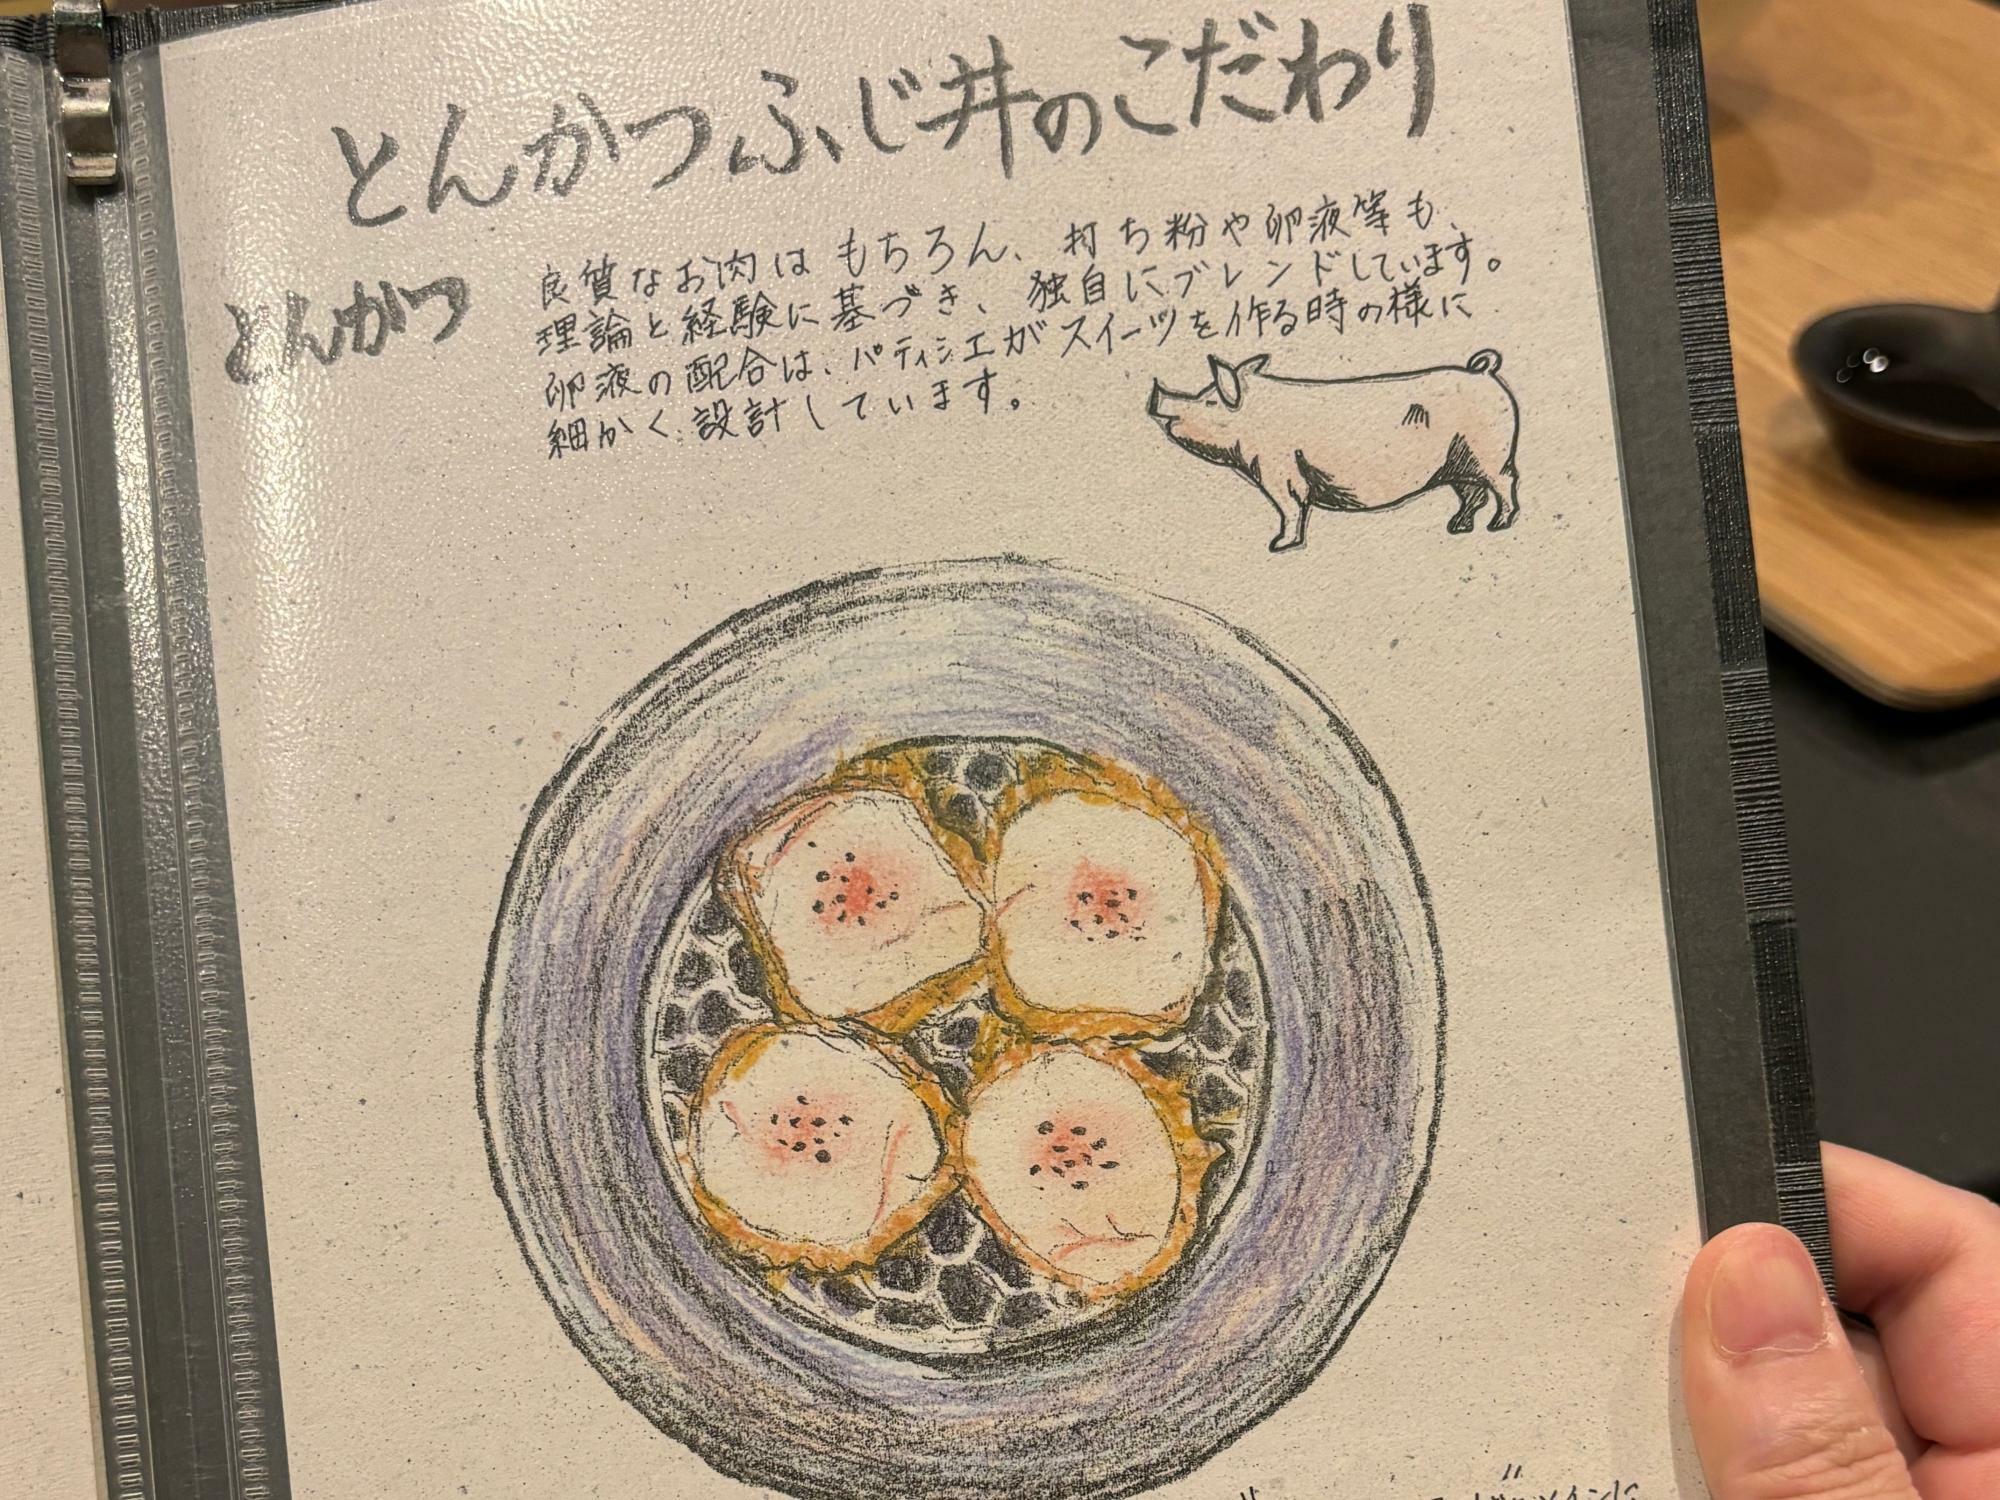 とんかつふじ丼のこだわり
とんかつ
良質なお肉はもちろん、打ち粉や卵液等も、
理論と経験に基づき、独自にブレンドしています。
卵液の配合は、パティシエがスイーツを作る時の様に
細かく設計しています。